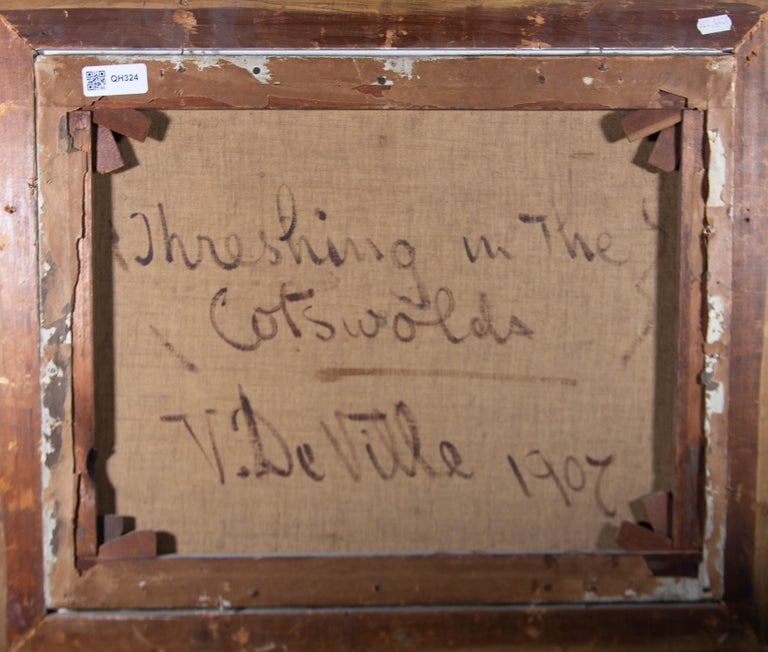 QH324
Threshing in The
Cotswolds
V. De Ville 1907